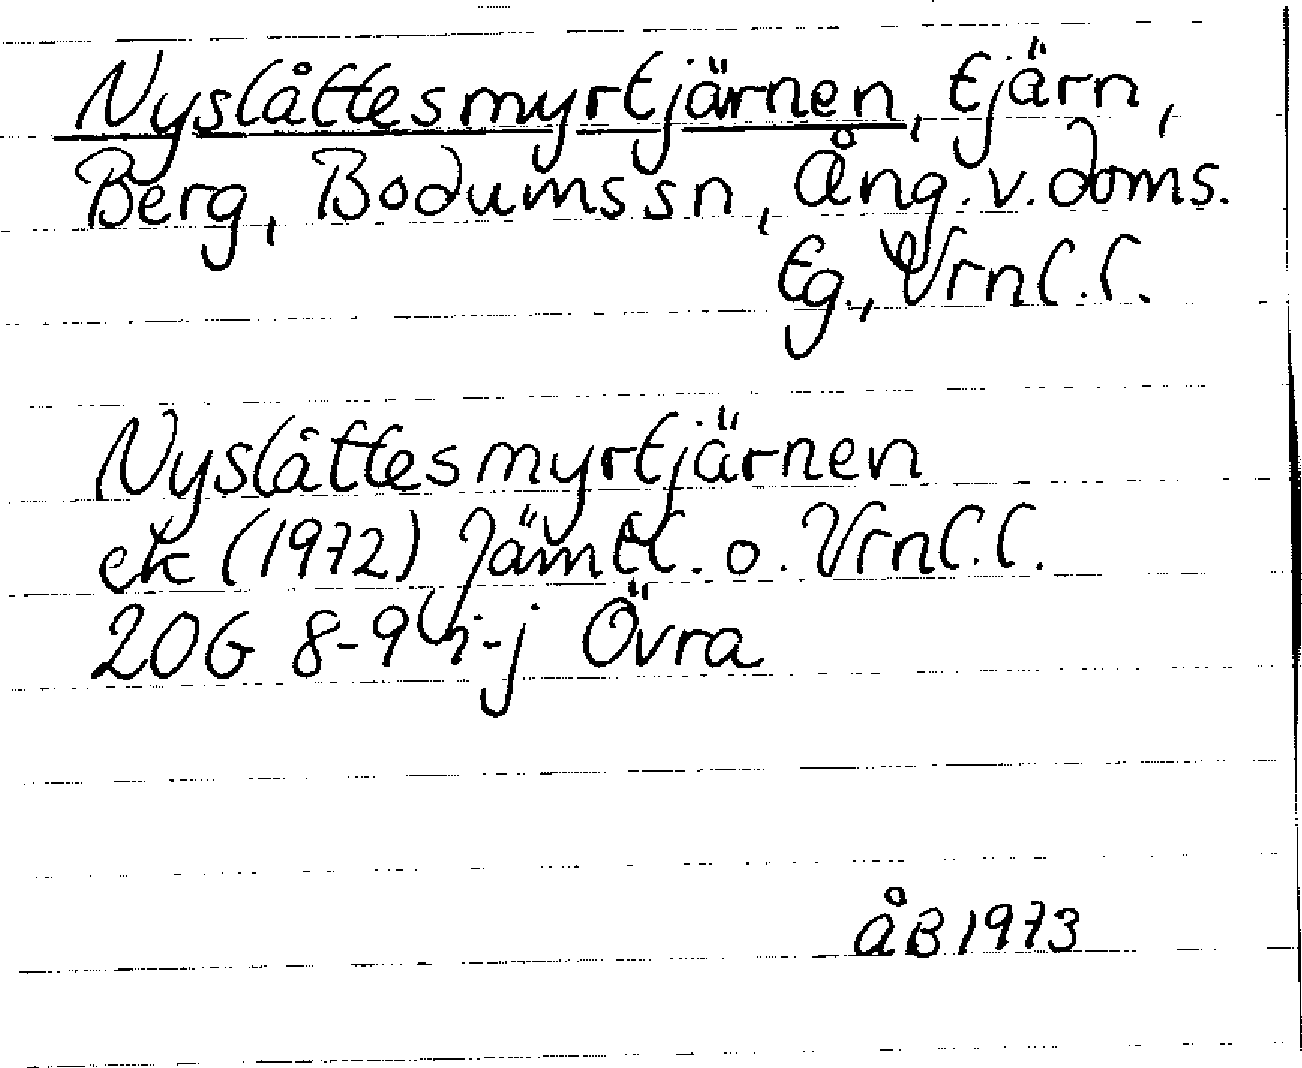 Nyslåttesmyrtjärnen, tjärn,
Berg, Bodums sn, Ång. v. doms.
tg., Vrnl. l.
Nyslåttesmyrtjärnen
ek (1972) Jämtl. o. Vrnl. l.
20G 8-9 i-j Övra
ÅB 1973